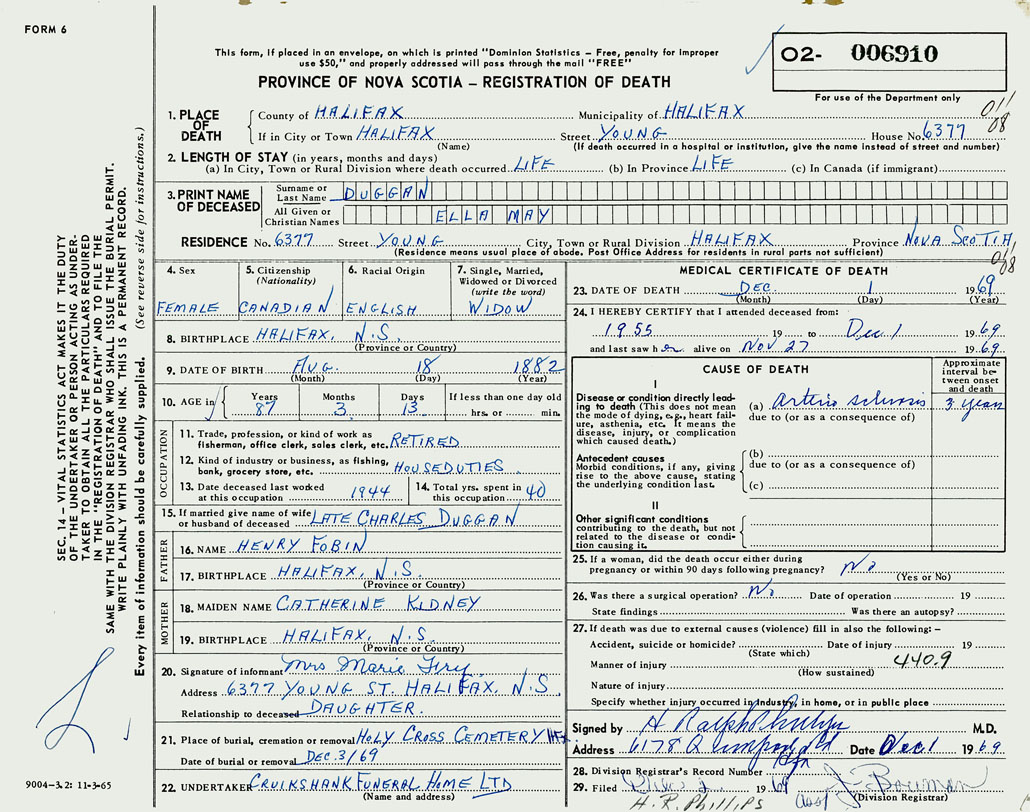 FORM 6
This form, if placed in an envelope, on which is printed "Dominion Statistics – Free, penalty for improper
use $50," and properly addressed will pass through the mail "FREE"
PROVINCE OF NOVA SCOTIA – REGISTRATION OF DEATH
02- 006910
For use of the Department only
011
08
1. PLACE OF DEATH
County of HALIFAX Municipality of HALIFAX
If in City or Town HALIFAX Street YOUNG House No. 6377
(Name) (If death occurred in a hospital or institution, give the name instead of street and number)
2. LENGTH OF STAY (in years, months and days)
(a) In City, Town or Rural Division where death occurred LIFE (b) In Province LIFE (c) In Canada (if immigrant)
3. PRINT NAME OF DECEASED
Surname or Last Name DUGGAN
All Given or Christian Names ELLA MAY
RESIDENCE No. 6377 Street YOUNG City, Town or Rural Division HALIFAX Province NOVA SCOTIA
(Residence means usual place of abode. Post Office Address for residents in rural parts not sufficient)
011
08
4. Sex FEMALE
5. Citizenship (Nationality) CANADIAN
6. Racial Origin ENGLISH
7. Single, Married, Widowed or Divorced (write the word) WIDOW
8. BIRTHPLACE HALIFAX, N.S.
(Province or Country)
9. DATE OF BIRTH AUG. 18 1882
(Month) (Day) (Year)
10. AGE in Years 87 Months 3 Days 13 If less than one day old
hrs. or min.
OCCUPATION
11. Trade, profession, or kind of work as
fisherman, office clerk, sales clerk, etc. RETIRED
12. Kind of industry or business, as fishing,
bank, grocery store, etc. HOUSEDUTIES
13. Date deceased last worked at this occupation 1944
14. Total yrs. spent in this occupation 40
15. If married give name of wife or husband of deceased LATE CHARLES DUGGAN
FATHER
16. NAME HENRY FOBIN
17. BIRTHPLACE HALIFAX, N.S.
(Province or Country)
MOTHER
18. MAIDEN NAME CATHERINE KIDNEY
19. BIRTHPLACE HALIFAX, N.S.
(Province or Country)
20. Signature of informant Mrs Marie
Address 6377 YOUNG ST. HALIFAX. N.S
Relationship to deceased DAUGHTER.
21. Place of burial, cremation or removal HOLY CROSS CEMETERY HFX.
Date of burial or removal DEC. 3/69
22. UNDERTAKER CRUIKSHANK FUNERAL HOME LTD
(Name and address)
MEDICAL CERTIFICATE OF DEATH
23. DATE OF DEATH DEC. 1 1969
(Month) (Day) (Year)
24. I HEREBY CERTIFY that I attended deceased from:
1955 19 to Dec 1 1969
and last saw her alive on Nov 27 1969
CAUSE OF DEATH
Approximate interval between onset and death
I
Disease or condition directly leading to death (This does not mean the mode of dying, e.g., heart failure, asthenia, etc. It means the disease, injury, or complication which caused death.)
(a) Arterio sclerosis 3 years
due to (or as a consequence of)
Antecedent causes
Morbid conditions, if any, giving rise to the above cause, stating the underlying condition last.
(b)
due to (or as a consequence of)
(c)
II
Other significant conditions
contributing to the death, but not related to the disease or condition causing it.
25. If a woman, did the death occur either during
pregnancy or within 90 days following pregnancy? No
(Yes or No)
26. Was there a surgical operation? No Date of operation 19
State findings Was there an autopsy?
27. If death was due to external causes (violence) fill in also the following: –
Accident, suicide or homicide? Date of injury 19
(State which)
Manner of injury 440.9
(How sustained)
Nature of injury
Specify whether injury occurred in industry, in home, or in public place
Signed by H Ralph Phillips M.D.
Address 6178 Quinpool Rd Date Dec 1 1969
Hfx
28. Division Registrar's Record Number
29. Filed 1969
(Division Registrar)
H. R. PHILLIPS
SEC. 14 – VITAL STATISTICS ACT MAKES IT THE DUTY
OF THE UNDERTAKER OR PERSON ACTING AS UNDER-
TAKER TO OBTAIN ALL THE PARTICULARS REQUIRED
IN THE "REGISTRATION OF DEATH" AND TO FILE THE
SAME WITH THE DIVISION REGISTRAR WHO SHALL ISSUE THE BURIAL PERMIT.
WRITE PLAINLY WITH UNFADING INK. THIS IS A PERMANENT RECORD.
Every item of information should be carefully supplied. (See reverse side for instructions.)
9004-3.2: 11-3-65